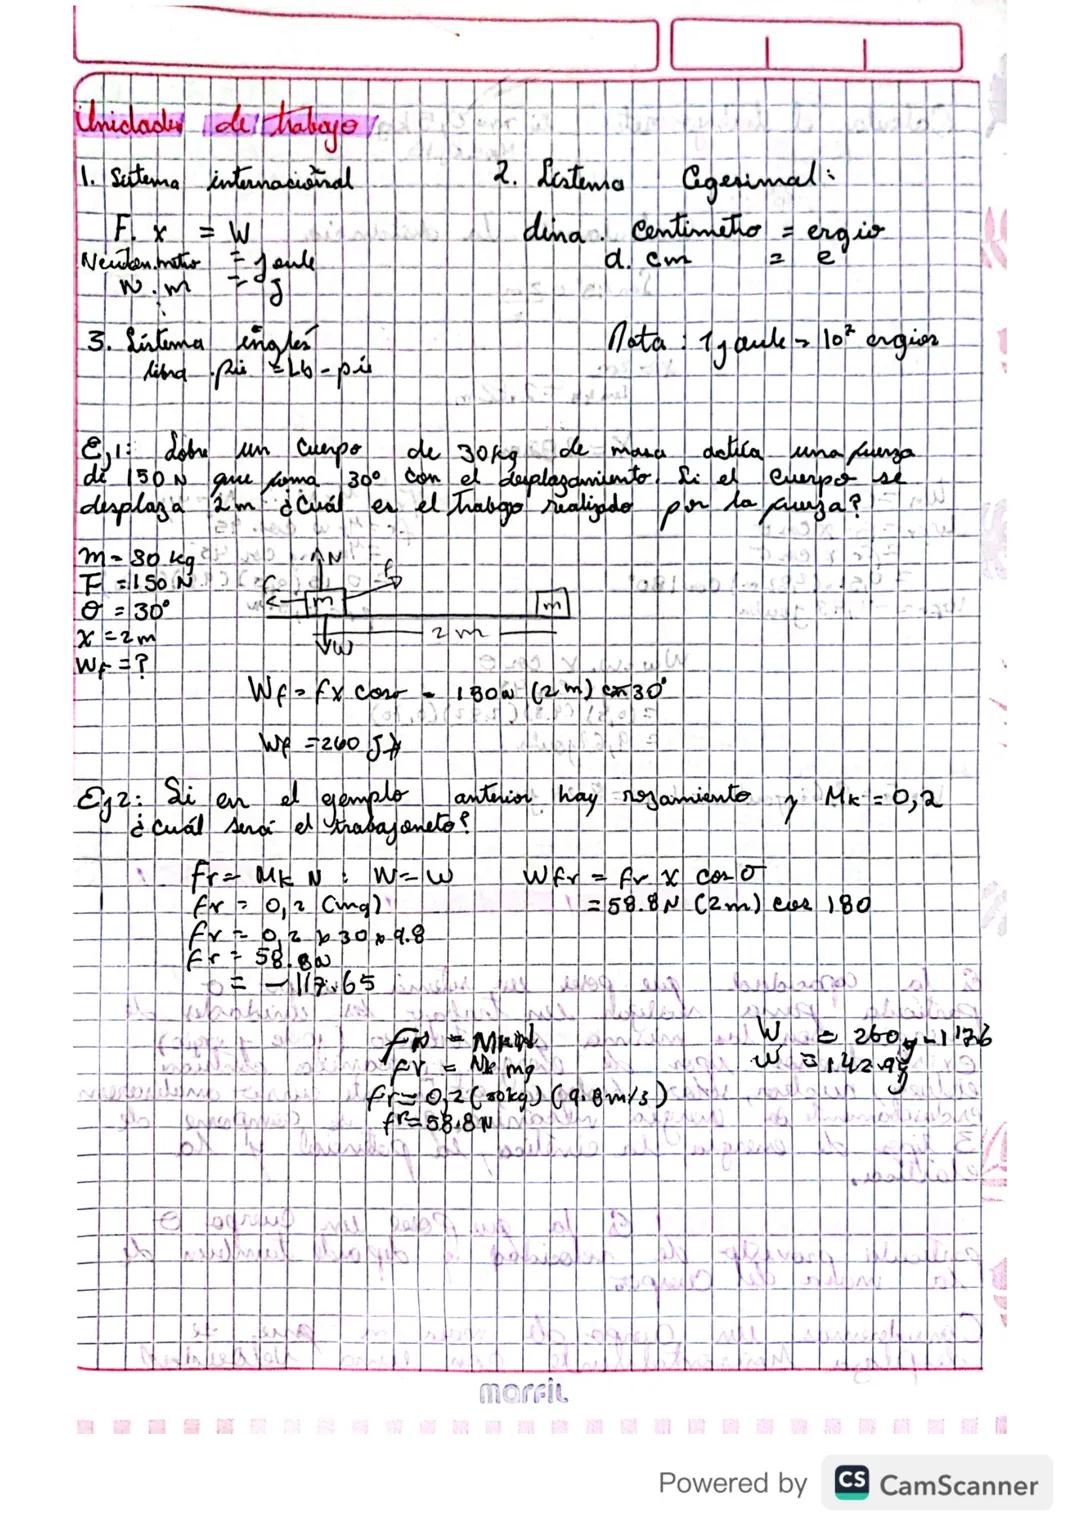 Unidades de trabajo
1. Sistema internacional
F. x = W
Newton.metro = Joule
N . m = J
2. Sistema Cegesimal:
dina . Centimetro = ergio
d. cm = e
3. Sistema inglés
libra . pie = Lb - pié
Nota : 1 joule = 10⁷ ergios
Ej1: Sobre un cuerpo de 30 kg de masa actúa una fuerza
de 150 N que forma 30° con el desplazamiento. Si el cuerpo se
desplaza 2 m ¿Cuál es el trabajo realizado por la fuerza?
m = 30 kg
F = 150 N
θ = 30°
X = 2m
WF = ?
N
F
m
m
2 m
W
WF = Fx cosσ = 150N (2 m) cos 30°
WF = 260 J
Ej2: Si en el ejemplo anterior hay rozamiento y Mk = 0,2
¿Cuál será el trabajo neto?
Fr = Mk N : W = W
fr = 0,2 (mg)
fr = 0,2 x 30 x 9.8
fr = 58.8N
Wfr = fr X cos σ
= 58.8N (2m) cos 180
= -117.65
fr = Mk mg
fr = 0,2 (30kg) (9.8 m/s)
fr = 58.8N
W = 260J - 117.6
W = 142.4J
marfil
Powered by CS CamScanner